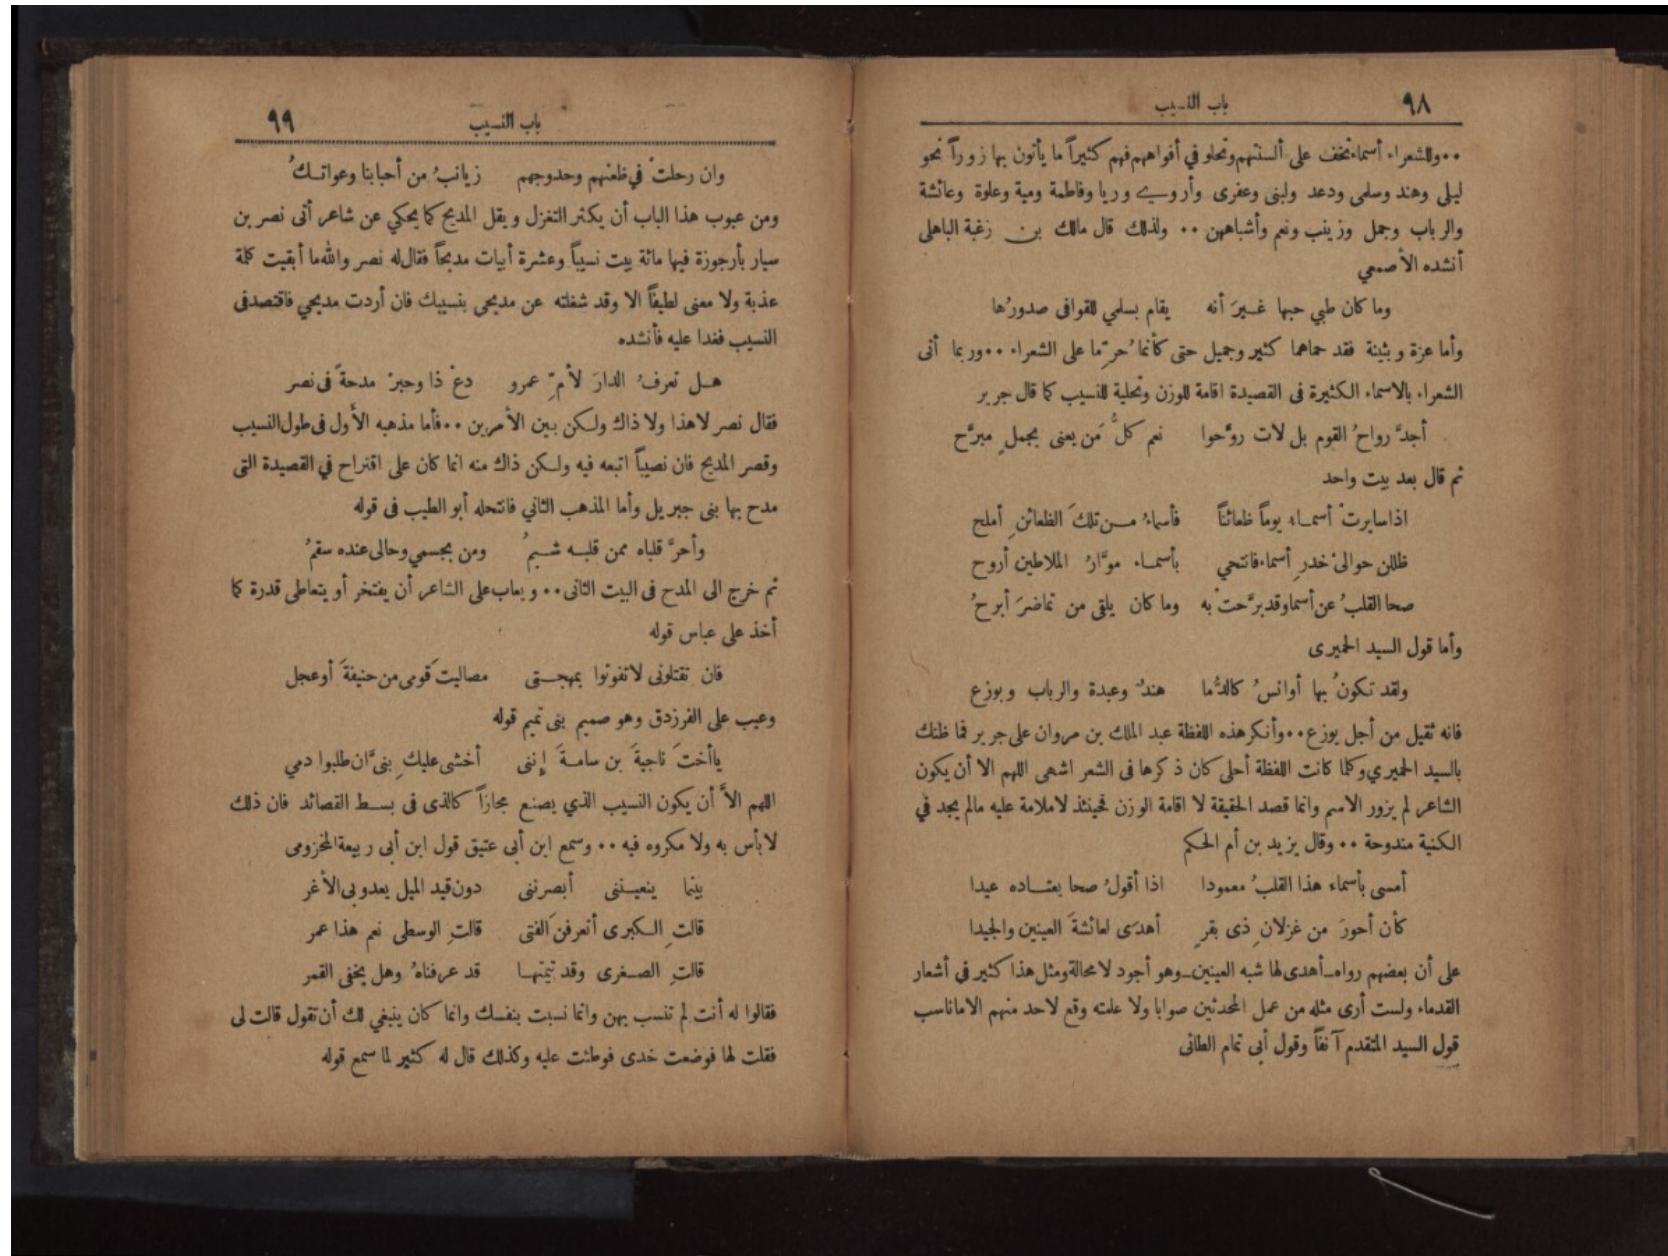 ٩٨
باب النسيب
٠٠ وللشعراء أسماء تخف على ألسنتهم وتحلو في أفواههم فهم كثيراً ما يأتون بها زوراً نحو
ليلى وهند وسلمى ودعد ولبنى وعفرى وأروى وريا وفاطمة ومية وعلوة وعائشة
والرباب وجمل وزينب ونعم وأشباههن ٠٠ ولذلك قال مالك بن زغبة الباهلى
أنشده الأصمعي
وما كان طبي حبها غير َ أنه يقام بسلمي للقوافى صدورُها
وأما عزة وبثينة فقد حماهما كثير وجميل حتى كأنما حُرِّما على الشعراء ٠٠ وربما أتى
الشعراء بالاسماء الكثيرة فى القصيدة اقامة للوزن وتحلية للنسيب كما قال جرير
أجدَّ رواحُ القوم بل لات روَّحوا نعم كلُّ مَن يعنى بجملٍ مبرَّح
ثم قال بعد بيت واحد
اذا سايرتْ أسماء يوماً ظعائناً فأسماءُ من تلكَ الظعائنِ أملح
ظللن حوالىْ خدرِ أسماء فانتحي بأسماء موَّارُ الملاطين أروح
صحا القلبُ عن أسما وقد برَّحتْ به وما كان يلقى من تماضرَ أبرحُ
وأما قول السيد الحميرى
ولقد تكونُ بها أوانسُ كالدُّما هندٌ وعبدة والرباب وبوزع
فانه ثقيل من أجل بوزع ٠٠ وأنكر هذه اللفظة عبد الملك بن مروان على جرير فما ظنك
بالسيد الحميري وكلما كانت اللفظة أحلى كان ذكرها فى الشعر اشهى اللهم الا أن يكون
الشاعر لم يزور الاسم وانما قصد الحقيقة لا اقامة الوزن فحينئذ لا ملامة عليه مالم يجد في
الكنية مندوحة ٠٠ وقال يزيد بن أم الحكم
أمسى بأسماء هذا القلبُ معمودا اذا أقولُ صحا يعتاده عيدا
كأن أحورَ من غزلانِ ذى بقرٍ أهدَى لعائشةَ العينين والجيدا
على أن بعضهم رواه ـ أهدى لها شبه العينين ـ وهو أجود لامحالة ومثل هذا كثير في أشعار
القدماء ولست أرى مثله من عمل المحدثين صوابا ولا علمته وقع لاحد منهم الا ماناسب
قول السيد المتقدم آنفاً وقول أبى تمام الطائى
باب النسيب
٩٩
وان رحلتْ في ظعنهم وحدوجهم زيانبُ من أحبابنا وعواتكُ
ومن عيوب هذا الباب أن يكثر التغزل ويقل المديح كما يحكي عن شاعر أتى نصر بن
سيار بأرجوزة فيها مائة بيت نسيباً وعشرة أبيات مديحاً فقال له نصر والله ما أبقيت كلمة
عذبة ولا معنى لطيفاً الا وقد شغلته عن مديحي بنسيبك فان أردت مديحي فاقتصد فى
النسيب فغدا عليه فأنشده
هل تعرفُ الدارَ لأمِّ عمرو دعْ ذا وحبرْ مدحةً فى نصر
فقال نصر لا هذا ولا ذاك ولكن بين الأمرين ٠٠ فأما مذهبه الأول فى طول النسيب
وقصر المديح فان نصيباً اتبعه فيه ولكن ذاك منه انما كان على اقتراح في القصيدة التى
مدح بها بنى جبريل وأما المذهب الثاني فانتحله أبو الطيب فى قوله
وأحرَّ قلباه ممن قلبه شبمُ ومن بجسمي وحالى عنده سقمُ
ثم خرج الى المدح فى البيت الثانى ٠٠ ويعاب على الشاعر أن يفتخر أو يتعاطى قدرة كما
أخذ على عباس قوله
فان تقتلونى لا تفوتوا بمهجتى مصاليتَ قومى من حنيفةَ أوعجل
وعيب على الفرزدق وهو صميم بنى تميم قوله
ياأختَ ناجيةَ بن سامةَ إننى أخشى عليكِ بنىَّ ان طلبوا دمي
اللهم الاَّ أن يكون النسيب الذي يصنع مجازاً كالذى فى بسط القصائد فان ذلك
لابأس به ولا مكروه فيه ٠٠ وسمع ابن أبى عتيق قول ابن أبى ربيعة المخزومى
بينما ينعيتنى أبصرننى دون قيد الميل يعدوبى الأغر
قالتِ الكبرى أتعرفنَ الفتى قالتِ الوسطى نعم هذا عمر
قالتِ الصغرى وقد تيمتها قد عرفناهُ وهل يخفى القمر
فقالوا له أنت لم تنسب بهن وانما نسبت بنفسك وانما كان ينبغي لك أن تقول قالت لى
فقلت لها فوضعت خدى فوطئت عليه وكذلك قال له كثير لما سمع قوله